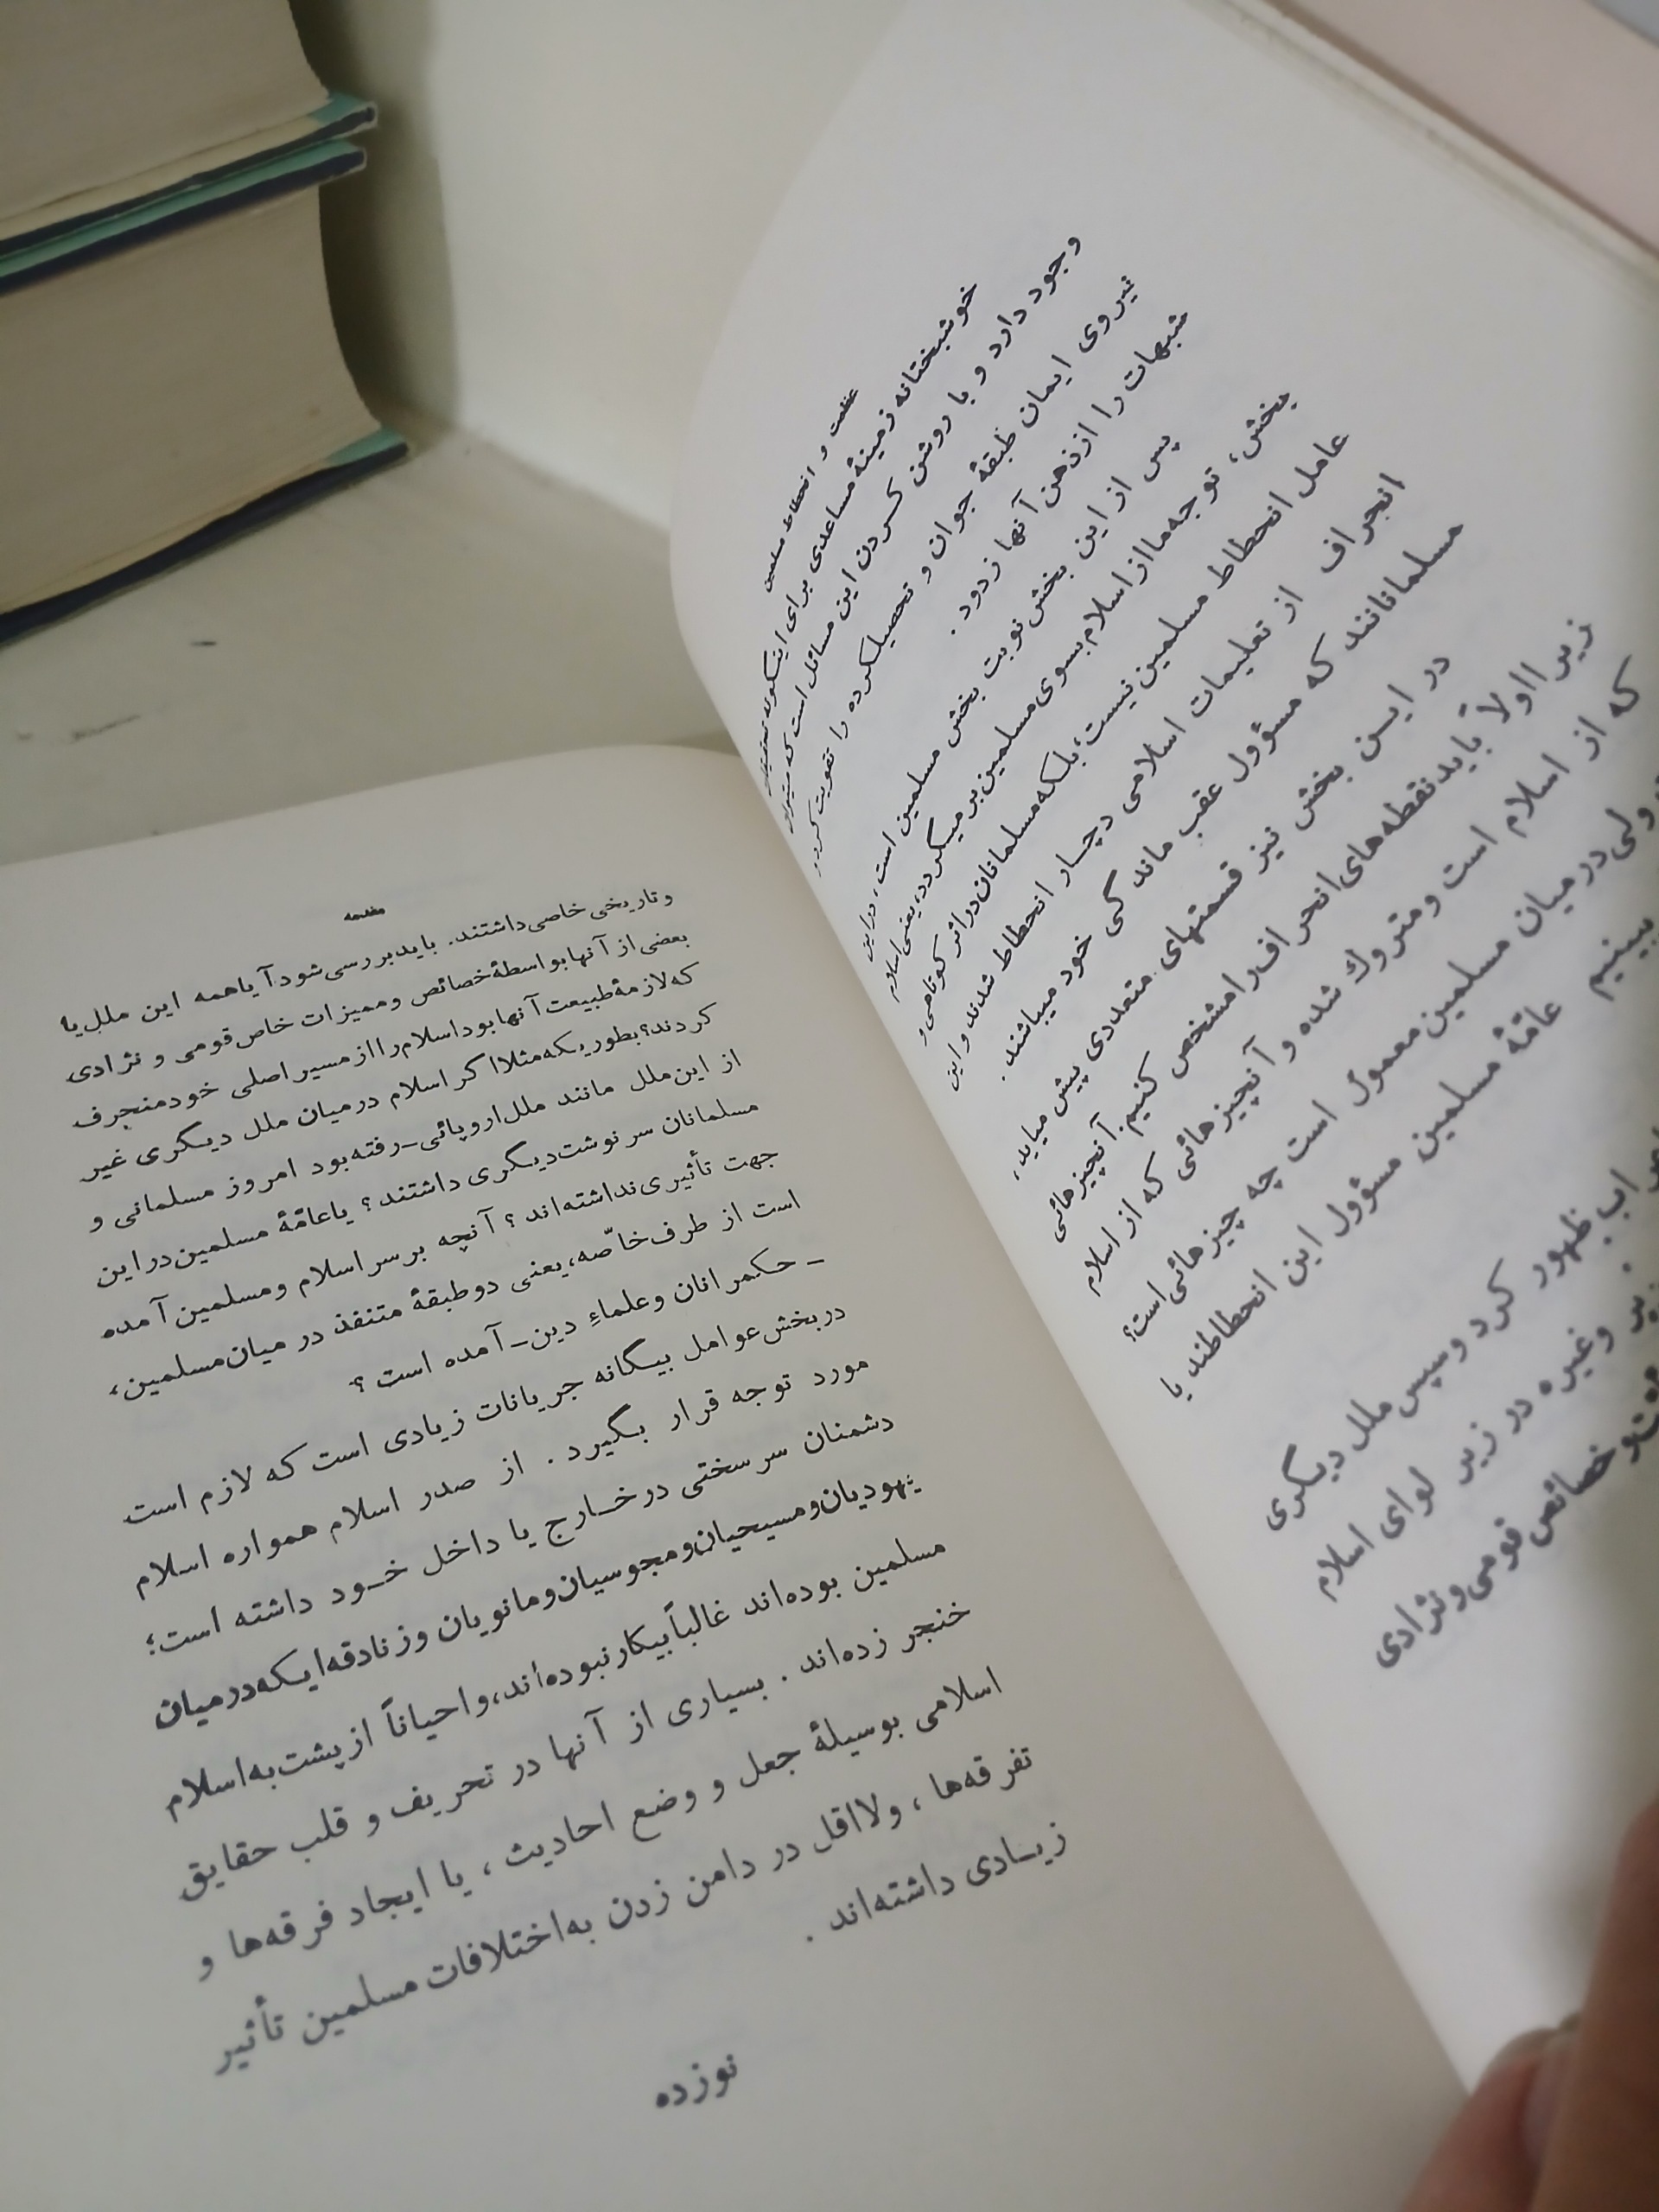 عظمت و انحطاط مسلمین
خوشبختانه زمینهٔ مساعدی برای
وجود دارد و با روشن کردن این مسائل است که میتوان
نیروی ایمان طبقهٔ جوان و تحصیلکرده را تقویت کرد،
شبهات را از ذهن آنها زدود.
پس از این بخش نوبت بخش مسلمین است، در این
بخش، توجه ما از اسلام بسوی مسلمین بر میگردد، یعنی اسلام
عامل انحطاط مسلمین نیست؛ بلکه مسلمانان در اثر کوتاهی و
انحراف از تعلیمات اسلامی دچار انحطاط شدند و این
مسلمانانند که مسؤول عقب ماندگی خود میباشند.
در این بخش نیز قسمتهای متعددی پیش میاید،
زیرا اولاً باید نقطه‌های انحراف را مشخص کنیم. آنچیزهائی
که از اسلام است و متروك شده و آنچیزهائی که از اسلام
ولی در میان مسلمین معمول است چه چیزهائی است؟
ببینیم عامّهٔ مسلمین مسؤول این انحطاطند یا
ظهور کرد و سپس ملل دیگری
وغیره در زیر لوای اسلام
خصائص قومی و نژادی
مقدمه
و تاریخی خاصی داشتند. باید بررسی شود آیا همه این ملل یا
بعضی از آنها بواسطهٔ خصائص و ممیزات خاص قومی و نژادی
که لازمهٔ طبیعت آنها بود اسلام را از مسیر اصلی خود منحرف
کردند؟ بطوریکه مثلا اگر اسلام در میان ملل دیگری غیر
از این ملل مانند ملل اروپائی - رفته بود امروز مسلمانی و
مسلمانان سرنوشت دیگری داشتند؟ یا عامّهٔ مسلمین در این
جهت تأثیری نداشته‌اند؟ آنچه بر سر اسلام و مسلمین آمده
است از طرف خاصّه، یعنی دو طبقهٔ متنفذ در میان مسلمین،
- حکمرانان و علماءِ دین - آمده است؟
در بخش عوامل بیگانه جریانات زیادی است که لازم است
مورد توجه قرار بگیرد. از صدر اسلام همواره اسلام
دشمنان سرسختی در خارج یا داخل خود داشته است؛
یهودیان و مسیحیان و مجوسیان و مانویان و زنادقه‌ایکه در میان
مسلمین بوده‌اند غالباً بیکار نبوده‌اند، و احیاناً از پشت به اسلام
خنجر زده‌اند. بسیاری از آنها در تحریف و قلب حقایق
اسلامی بوسیلهٔ جعل و وضع احادیث، یا ایجاد فرقه‌ها و
تفرقه‌ها، و لااقل در دامن زدن به اختلافات مسلمین تأثیر
زیادی داشته‌اند.
نوزده